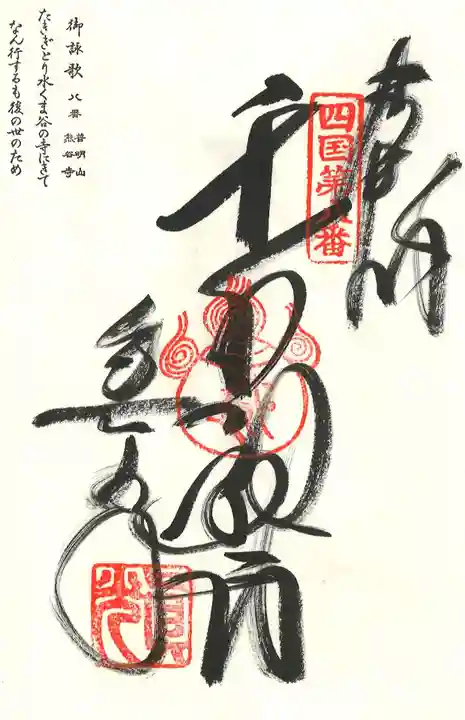 奉拝
四国第八番
千手大悲閣
熊谷寺
御詠歌 八番 普明山 熊谷寺
たきぎとり水くま谷の寺にきて
なん行するも後の世のため